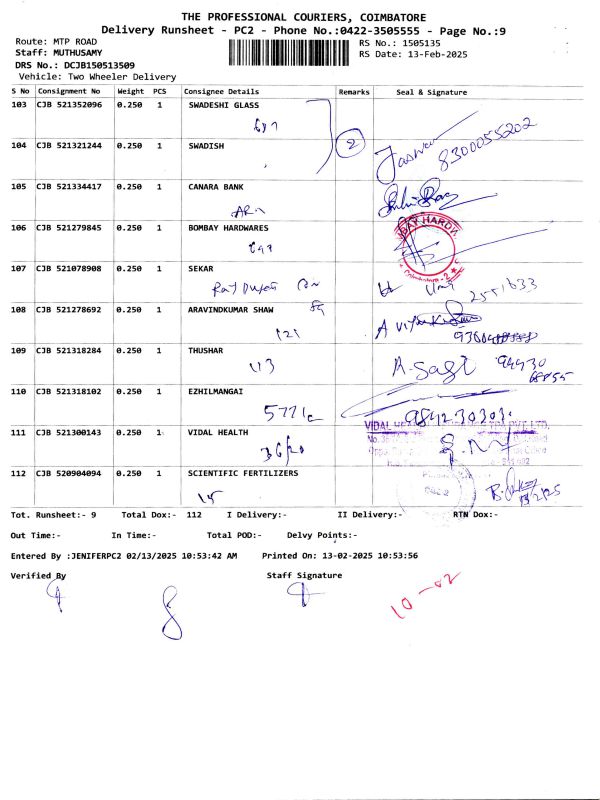 THE PROFESSIONAL COURIERS, COIMBATORE
Delivery Runsheet - PC2 - Phone No.:0422-3505555 - Page No.:9
Route: MTP ROAD RS No.: 1505135
Staff: MUTHUSAMY RS Date: 13-Feb-2025
DRS No.: DCJB150513509
Vehicle: Two Wheeler Delivery
S No Consignment No Weight PCS Consignee Details Remarks Seal & Signature
103 CJB 521352096 0.250 1 SWADESHI GLASS
2
104 CJB 521321244 0.250 1 SWADISH
8300055202
105 CJB 521334417 0.250 1 CANARA BANK
106 CJB 521279845 0.250 1 BOMBAY HARDWARES
107 CJB 521078908 0.250 1 SEKAR
2551633
108 CJB 521278692 0.250 1 ARAVINDKUMAR SHAW
121
109 CJB 521318284 0.250 1 THUSHAR
113
110 CJB 521318102 0.250 1 EZHILMANGAI
9842303031
111 CJB 521300143 0.250 1 VIDAL HEALTH
36/20
112 CJB 520904094 0.250 1 SCIENTIFIC FERTILIZERS
15
Tot. Runsheet:- 9 Total Dox:- 112 I Delivery:- II Delivery:- RTN Dox:-
Out Time:- In Time:- Total POD:- Delvy Points:-
Entered By :JENIFERPC2 02/13/2025 10:53:42 AM Printed On: 13-02-2025 10:53:56
Verified By Staff Signature
10-02